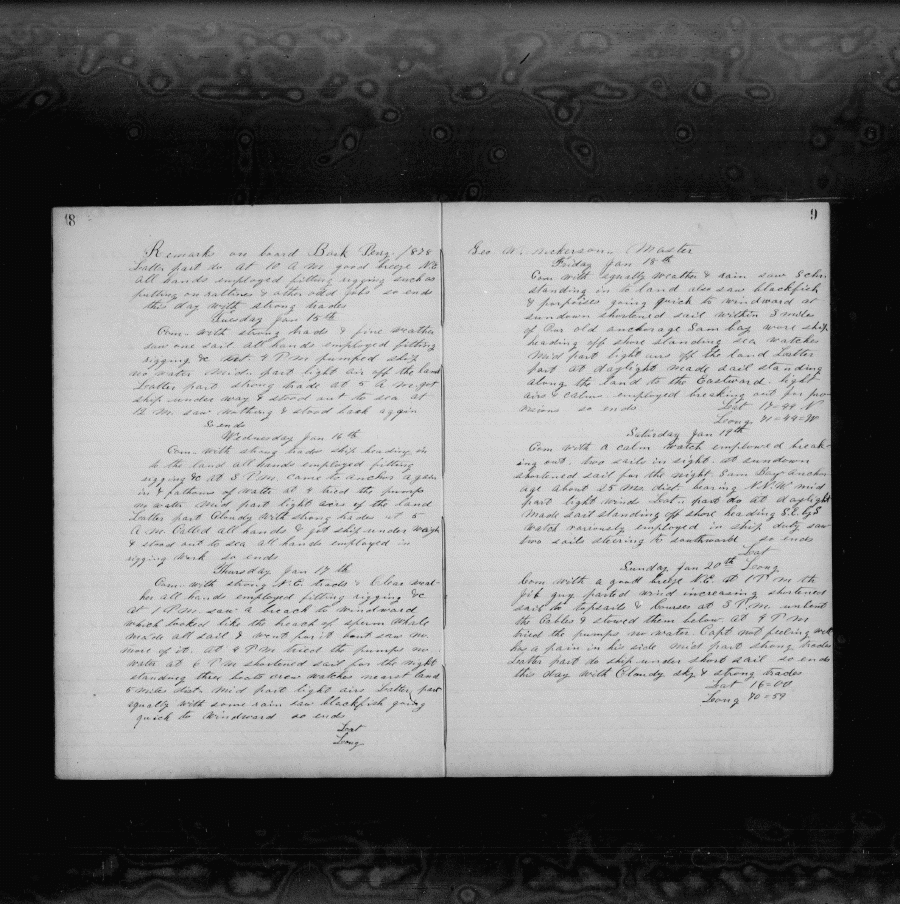 8
Remarks on board Bark Perry 1878
Latter part do at 10 A m good breeze N.E
all hands employed fitting rigging such as
putting on ratlines & other odd jobs so ends
this day with strong trades
Tuesday Jan 15th
Com. with strong trads & fine weather
saw one sail all hands employed fitting
rigging &c at 4 P m pumped ship
no water Mid. part light air off the land
Latter part strong trade at 5 A m got
ship under way & stood out to sea at
12 M. saw nothing & stood back again
So ends
Wednesday Jan 16th
Com. with strong trads ship heading in
to the land all hands employed fitting
rigging &c at 3 P.m. came to anchor again
in 4 fathoms of watter at 4 tried the pumps
no water mid part light airs of the land
Latter part Cloudy with strong trades at 5
A.m. Called all hands & got ship under waigh
& stood out to sea all hands employed in
rigging work so ends
Thursday Jan 17th
Com. with strong N.E. trads & Clear wea-
her all hands employed fitting rigging &c
at 1 P.m. saw a breach to windward
which looked like the breach of sperm Whale
made all sail & went for it bout saw no
more of it. at 4 P m tried the pumps no
water at 6 P m shortened sail for the night
standing thier boats crew watches nearest land
5 miles dist. mid part light airs Latter part
squally with some rain saw blackfish going
quick to windward so ends
Lat
Long
9
Geo. W. Nickerson Master
Friday Jan 18th
Com. with squally weather & rain saw Schr
standing in to land also saw blackfish
& porpoises going quick to windward at
sundown shortened sail within 8 miles
of Our old anchorage Sam bay wore ship
heading off shore standing sea watches
Mid part light airs off the land Latter
part at daylight made sail standing
along the land to the Eastward. light
airs & calms. employed breaking out for pro
visions so ends
Lat 17=44 N
Long 71=44=W
Saturday Jan 19th
Com with a calm watch employed break-
ing out. two sails in sight. at sundown
shortened sail for the night. Sam Bay anchor-
age about 25 Mls dist. bearing N.N.W mid
part light winds Lat. part do at daylight
made sail standing off shore heading S.E by S
Watch variously employed in ship duty saw
two sails steering to southward so ends
Lat
Long
Sunday Jan 20th
Com with a good breeze N.E. at 1 P m the
jib guy parted wind increasing shortened
sail to topsails & Courses at 3 P.m. unbent
the Cables & stowed them below. at 4 P m
tried the pumps no water. Capt not feeling well
has a pain in his side mid part strong trades
Latter part do ship under short sail so ends
this day with Cloudy sky & strong trades
Lat 16=00
Long 70=59